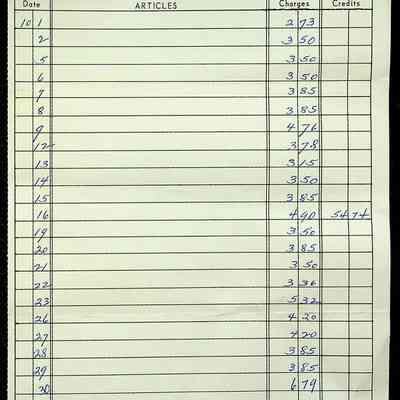 Date ARTICLES Charges Credits
10 1 2 73
2 3 50
5 3 50
6 3 50
7 3 85
8 3 85
9 4 76
12 3 78
13 3 15
14 3 50
15 3 85
16 4 90 54 74
19 3 50
20 3 85
21 3 50
22 3 36
23 5 32
26 4 20
27 4 20
28 3 85
29 3 85
30 6 79